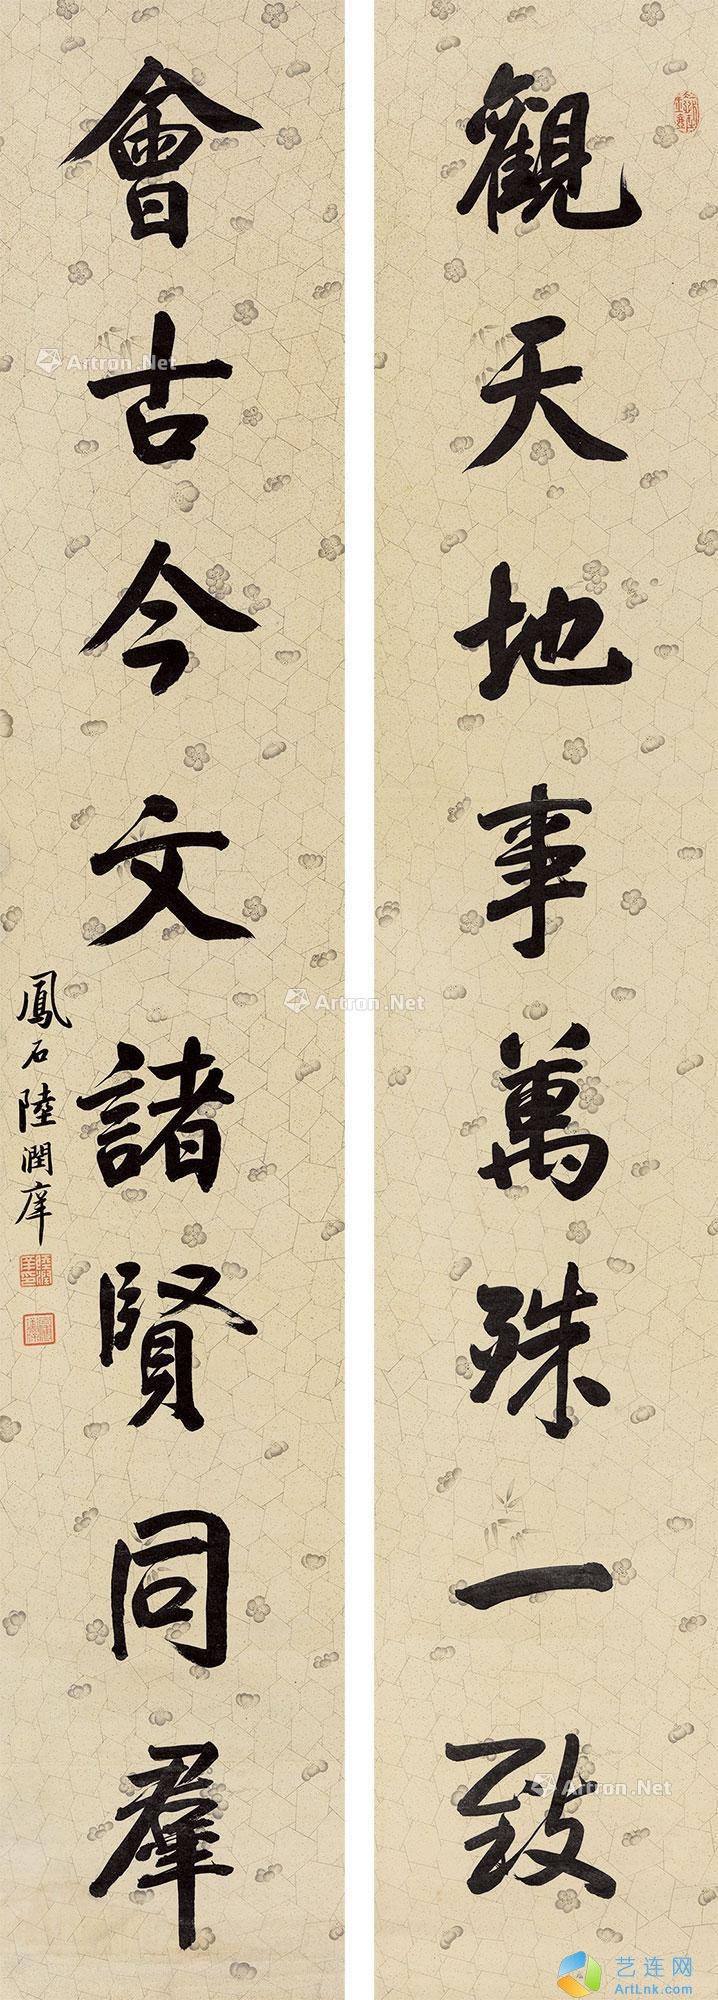 觀天地事萬殊一致
會古今文諸賢同羣
鳳石陸潤庠
Artron.Net
Artron.Net
Artron.Net
艺连网
ArtLnk.com